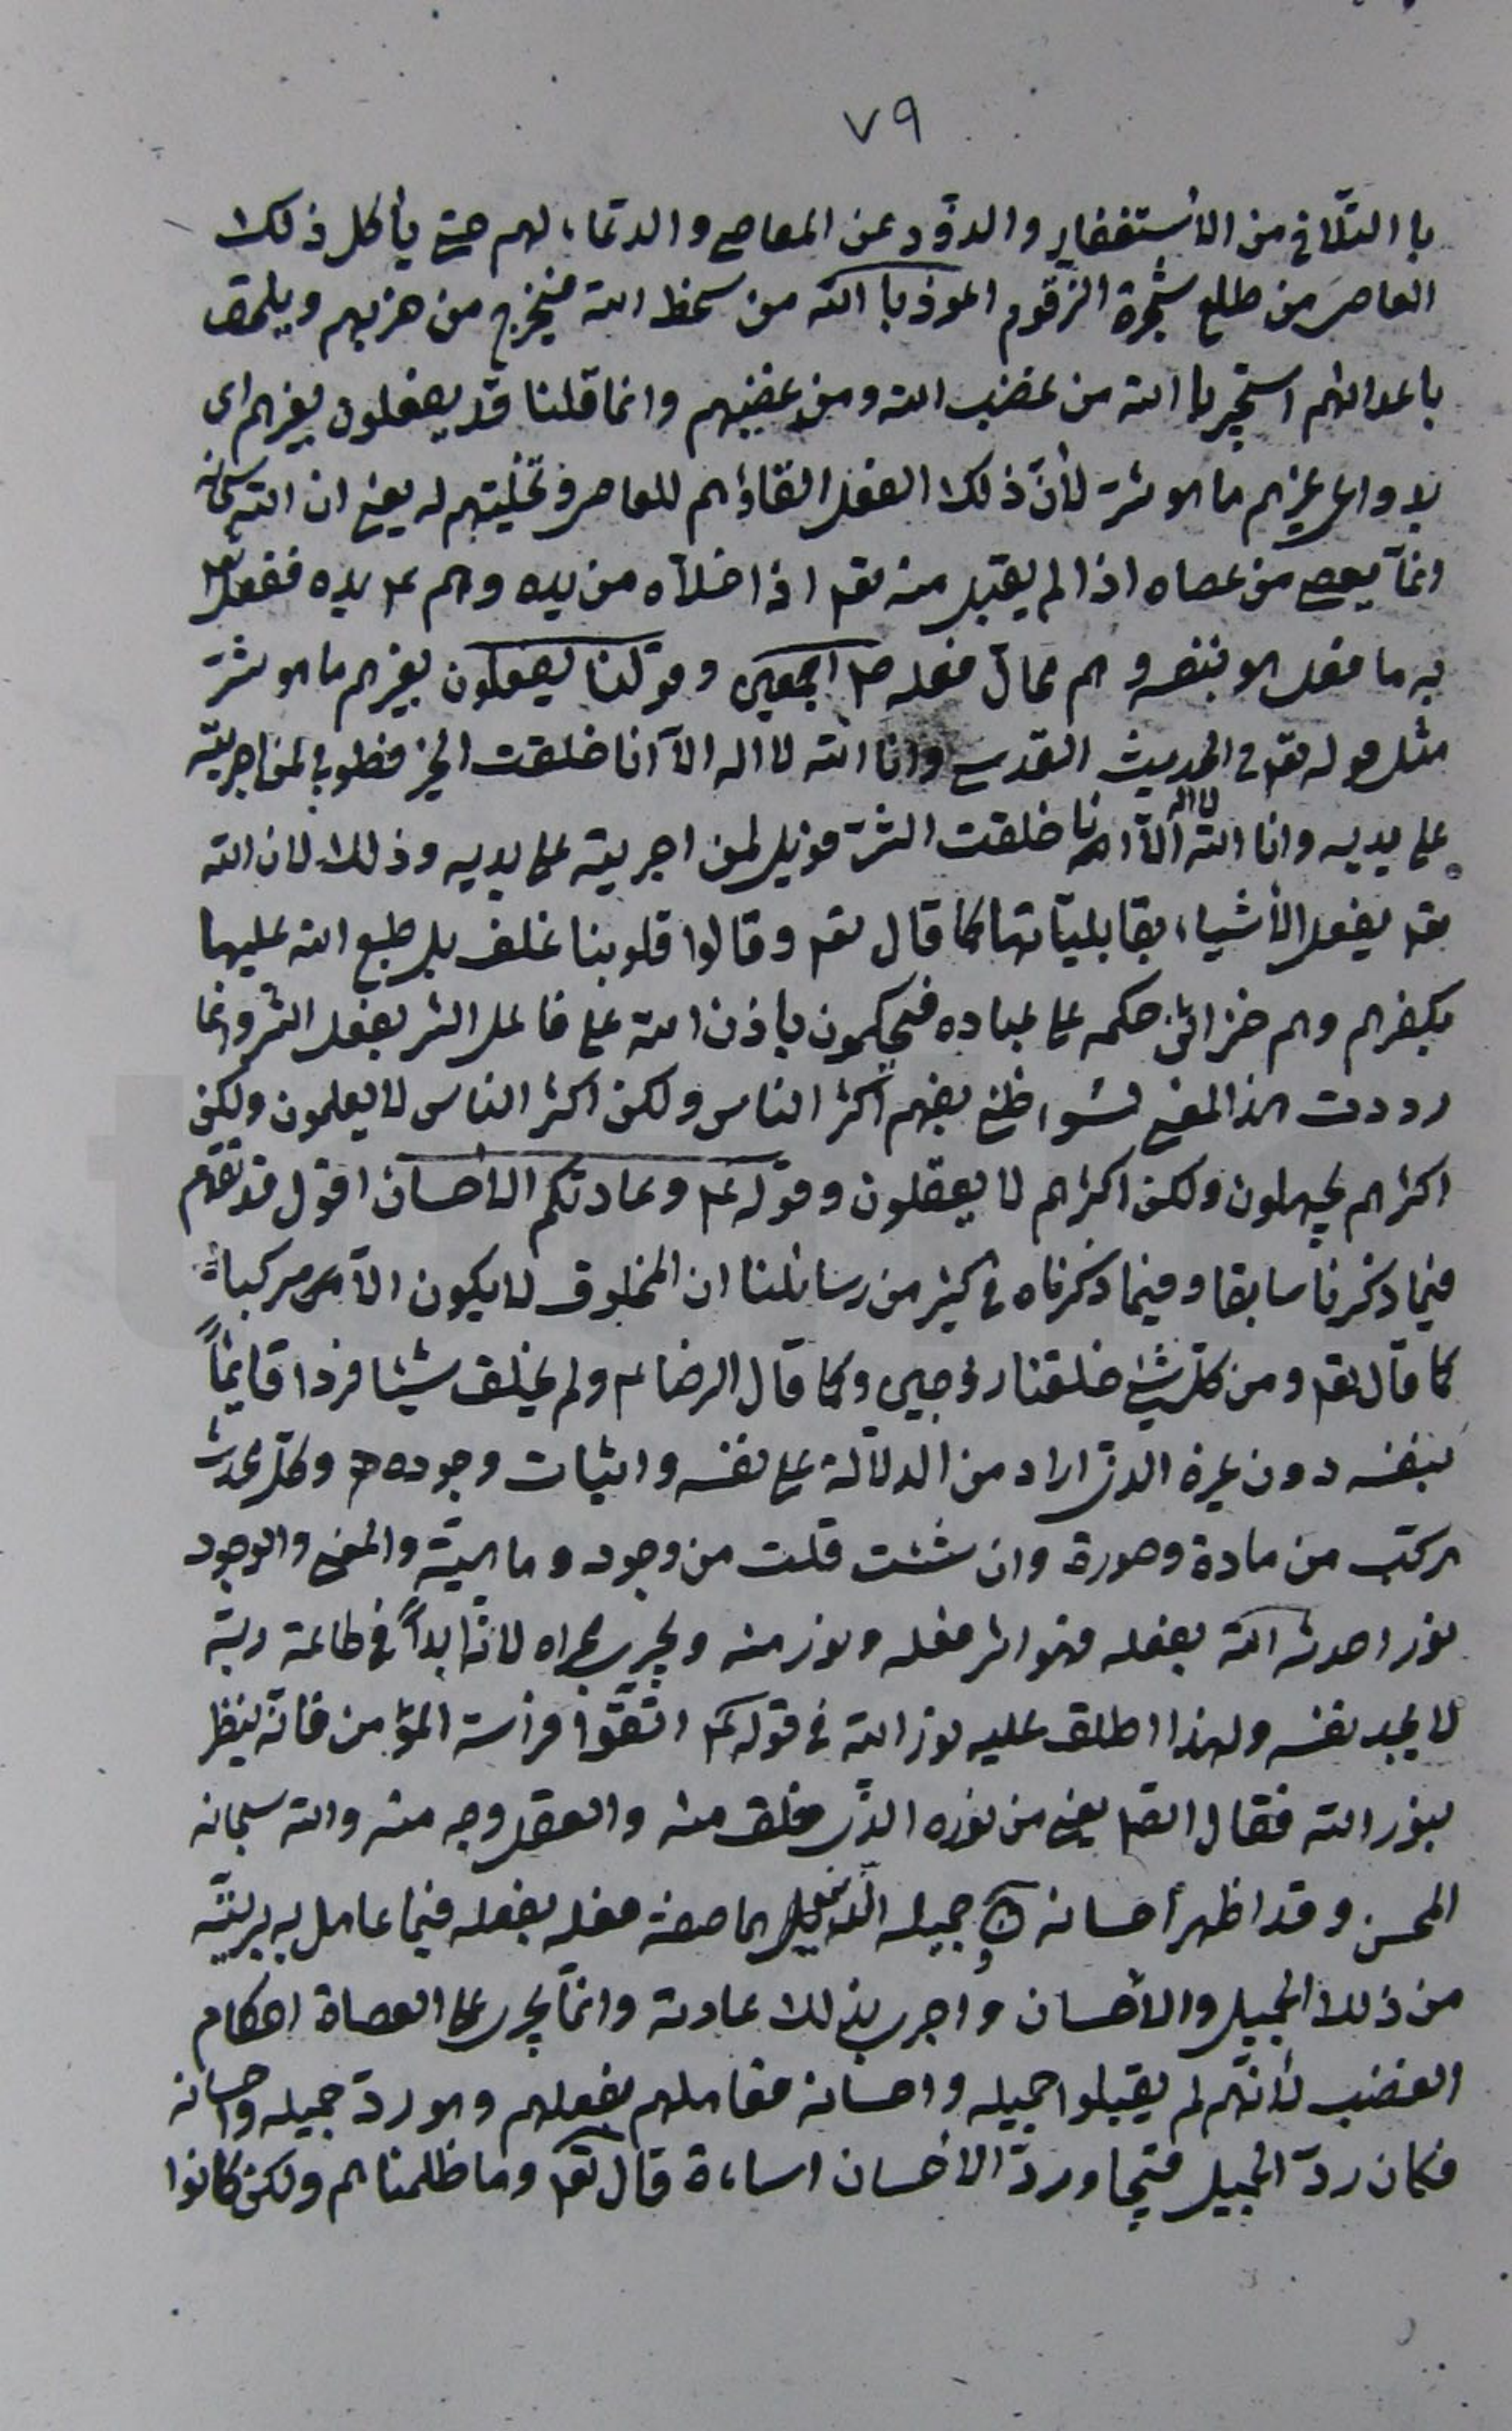 ٧٩
با التلافى من الأستغفار والذود عن المعاصى والدعاء لهم حتى يأكل ذلك
العاصى من طلع شجرة الزقوم اعوذ با الله من سخط الله فيخرج من حزبهم ويلحق
باعدائهم استجير با الله من غضب الله ومن غضبهم وانما قلنا قد يفعلون بغيرهم اى
بدواعى غيرهم ما هو شر لأنّ ذلك الفعل القاؤهم للعاصى وتخليتهم له يعنى ان الله سبحانه
انمّا يعصى من عصاه اذا لم يقبل منه تعالى اذا خلاّه من يده وهم ع يده ففعل تعالى
به ما فعل هو بنفسه وهم محالّ فعله ص اجمعين وقولنا يفعلون بغيرهم ما هو شرّ
مثل قوله تعالى فى الحديث القدسى وانا الله لا اله الاّ انا خلقت الخير فطوبى لمن اجريته
على يديه وانا الله لا اله الاّ انا خلقت الشرّ فويل لمن اجريته على يديه وذلك لان الله
تعالى يفعل الأشياء بقابليّاتها كما قال تعالى وقالوا قلوبنا غلف بل طبع الله عليها
بكفرهم وهم خزائن حكمه على عباده فيحكمون باذن الله على فاعل الشر بفعل الشر وانما
رددت هذا المعنى لسوء ظنى بفهم اكثر الناس ولكن اكثر الناس لا يعلمون ولكن
اكثرهم يجهلون ولكن اكثرهم لا يعقلون وقوله ع وعادتكم الأحسان اقول قد تقدم
فيما ذكرنا سابقا وفيما ذكرناه فى كثير من رسائلنا ان المخلوق لا يكون الاّ مركباً
كما قال تعالى ومن كلّ شئ خلقنا زوجين وكما قال الرضا ع ولم يخلق شيئا فردا قايماً
بنفسه دون غيره الذى اراد من الدلالة على نفسه واثبات وجوده وكلّ محدث
مركّب من مادة وصورة وان شئت قلت من وجود وماهيّة والمعنى والوجود
نور احدثه الله بفعله فهو اثر فعله ونور منه ويجرى مجراه لانّه ابداً فى طاعة ربّه
لا يجد نفسه ولهذا اطلق عليه نور الله فى قوله ع اتّقوا فراسة المؤمن فانّه ينظر
بنور الله فقال الص يعنى من نوره الذى خلق منه والعقل وجه منه والله سبحانه
المحسن وقد اظهر أحسانه جميله بفعله فيما عامل به بريّته
من ذلك الجميل والأحسان واجرى بذلك عادته وانمّا يجرى على العصاة احكام
الغضب لأنّهم لم يقبلوا جميله واحسانه فعاملهم بفعلهم وهو ردّ جميله واحسانه
فكان ردّ الجميل قبيحا وردّ الأحسان اساءة قال تعالى وما ظلمناهم ولكن كانوا